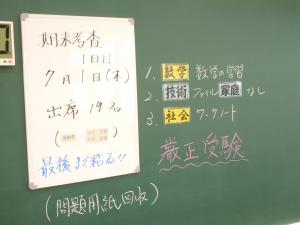 期末考査
1日目
7月1日(木)
出席 19名
最後まで粘る!!
1. 数学 数学の学習
2. 技術 ファイル 家庭 なし
3. 社会 ワークノート
厳正受験
(問題用紙回収)